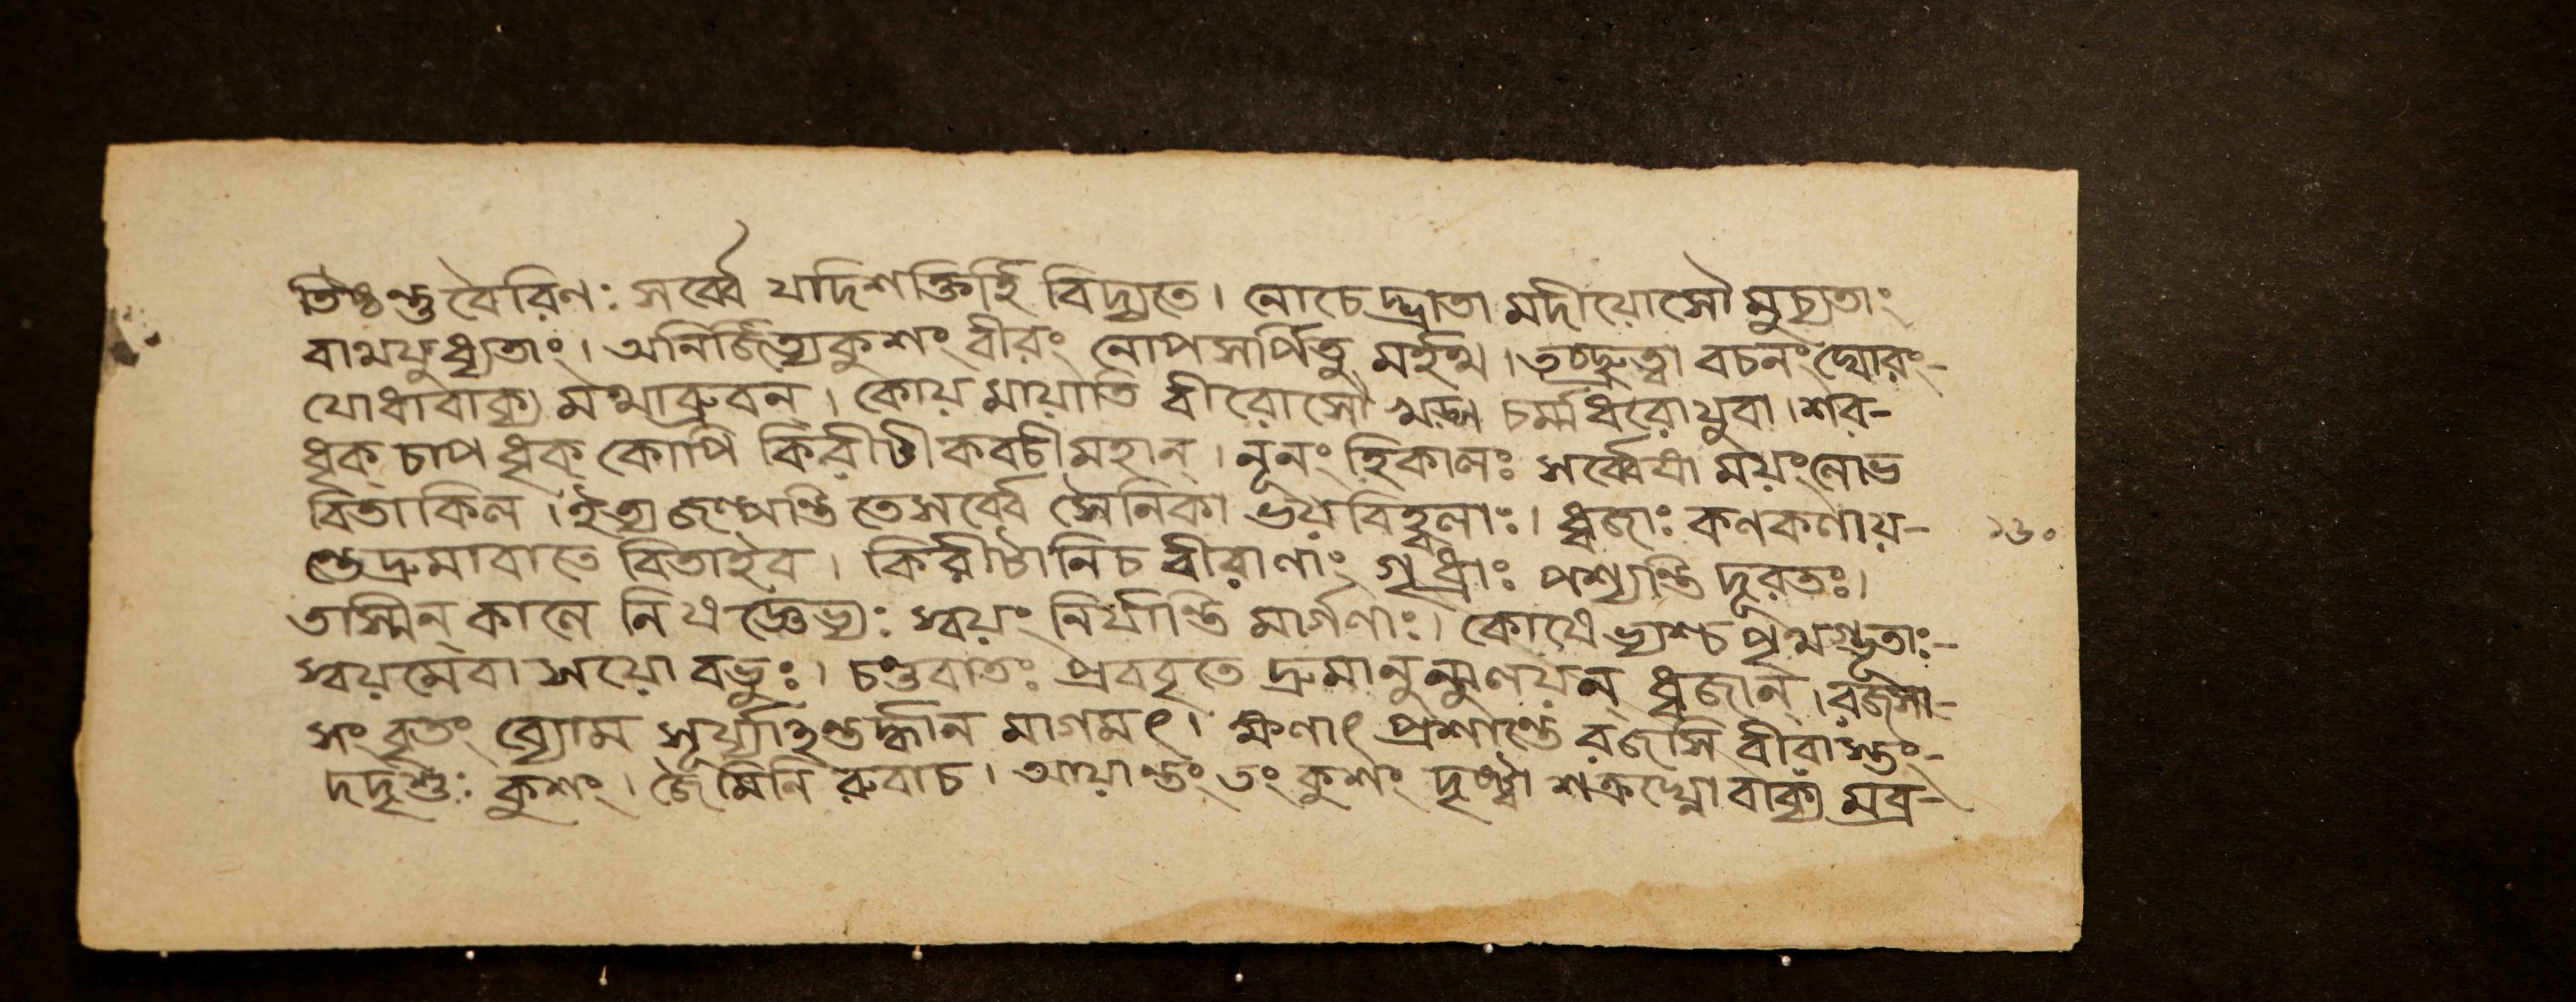 তিষ্ঠন্তু বৈরিণঃ সর্ব্বে যদিশক্তির্হি বিদ্যতে। নোচেদ্ভ্রাতা মদীয়োসৌ মুচ্যতাং
বাথযুধ্যতাং। অনির্জিত্যকুশং বীরং নোপসর্পিতু মর্হথ। তচ্ছ্রুত্বা বচনং ঘোরং-
যোধাবাক্য মথাব্রুবন্। কোয় মায়াতি বীরোসৌ খড্গ চর্ম্মধরোযুবা। শর-
ধৃক্ চাপ ধৃক্ কোপি কিরীটীকবচীমহান্। নূনং হিকালঃ সর্ব্বেষা ময়ংনোভ
বিতাকিল। ইত্য জল্পন্তি তেসর্ব্বে সৈনিকা ভয়বিহ্বলাঃ। ধ্বজাঃ কণকণায়- ১৬০
ন্তেদ্রুমাবাতে বিতাইব। কিরীটানিচ বীরাণাং গৃধ্রাঃ পশ্যন্তি দূরতঃ।
তস্মিন্ কালে নিষঙ্গেভ্যঃ স্বয়ং নির্যান্তি মার্গণাঃ। কোষেভ্যশ্চ পৃথগ্ভূতাঃ-
স্বয়মেবা সয়ো বভুঃ। চণ্ডবাতঃ প্রববৃতে দ্রুমানুন্মুলয়ন্ ধ্বজান্। রজসা-
সংবৃতং ব্যোম সূর্য্যোহন্তর্দ্ধান মাগমৎ। ক্ষণাৎ প্রশান্তে রজসি বীরাস্তং-
দদৃশুঃ কুশং। জৈমিনি রুবাচ। আয়ান্তং তং কুশং দৃষ্ট্বা শত্রুঘ্নো বাক্য মব্র-